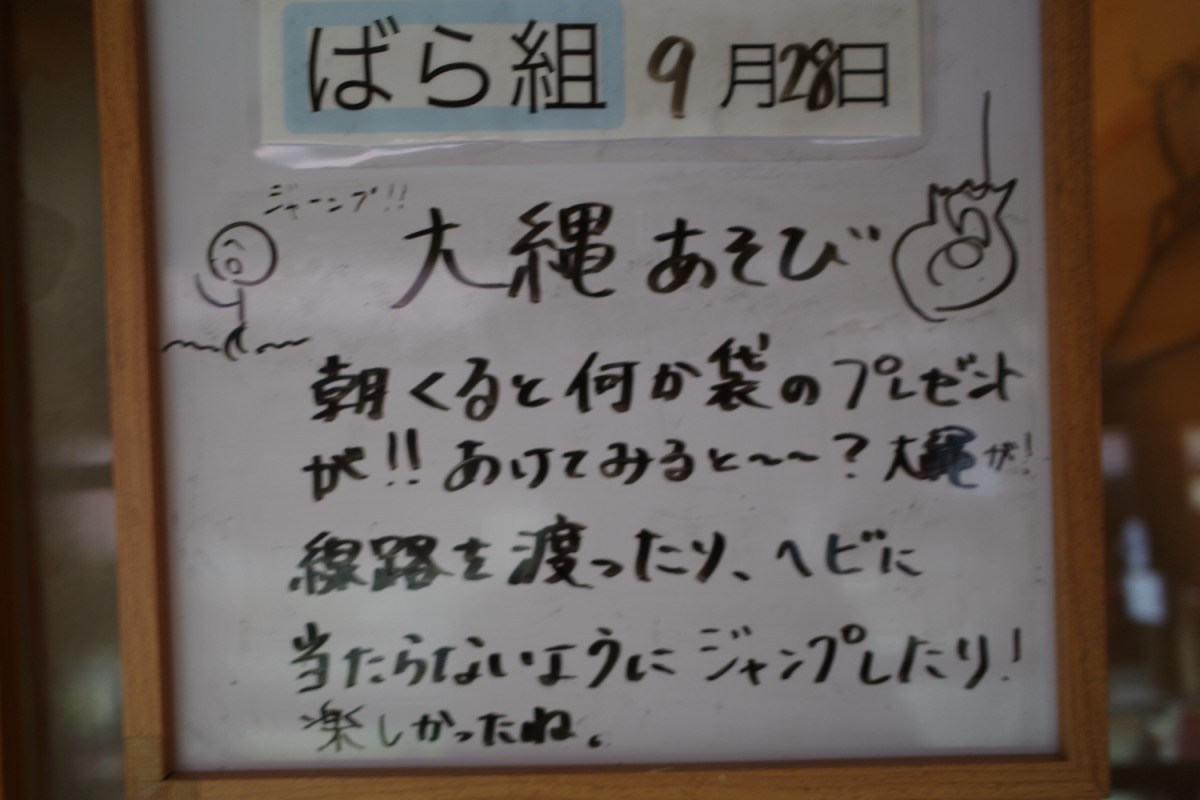 ばら組 9月28日
ジャーンプ!!
大縄あそび
朝くると何か袋のプレゼント
が!!あけてみると〜〜?大縄が!
線路を渡ったり、ヘビに
当たらないようにジャンプしたり!
楽しかったね。